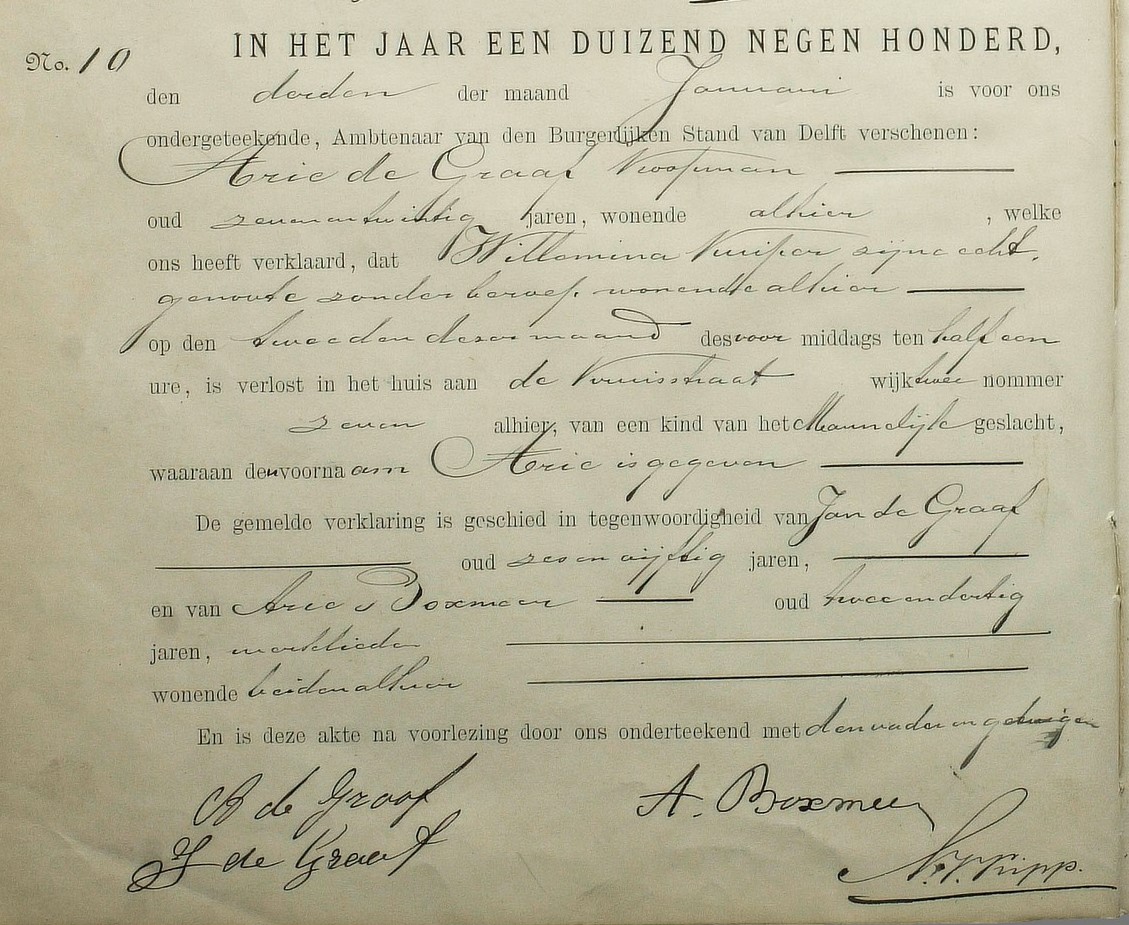 No. 10
IN HET JAAR EEN DUIZEND NEGEN HONDERD,
den derden der maand Januari is voor ons
ondergeteekende, Ambtenaar van den Burgerlijken Stand van Delft verschenen:
Arie de Graaf Koopman
oud zevenentwintig jaren, wonende alhier, welke
ons heeft verklaard, dat Willemina Kuiper zijne echt-
genoote zonder beroep, wonende alhier
op den tweeden dezer maand des voor middags ten half een
ure, is verlost in het huis aan de Kruisstraat wijk twee nommer
zeven alhier, van een kind van het Mannelijk geslacht,
waaraan den voornaam Arie is gegeven
De gemelde verklaring is geschied in tegenwoordigheid van Jan de Graaf
oud zesenvijftig jaren,
en van Arie Boxmeer oud tweeendertig
jaren, werklieden
wonende beiden alhier
En is deze akte na voorlezing door ons onderteekend met den vader en getuigen
A de Graaf
A. Boxmeer
J de Graaf